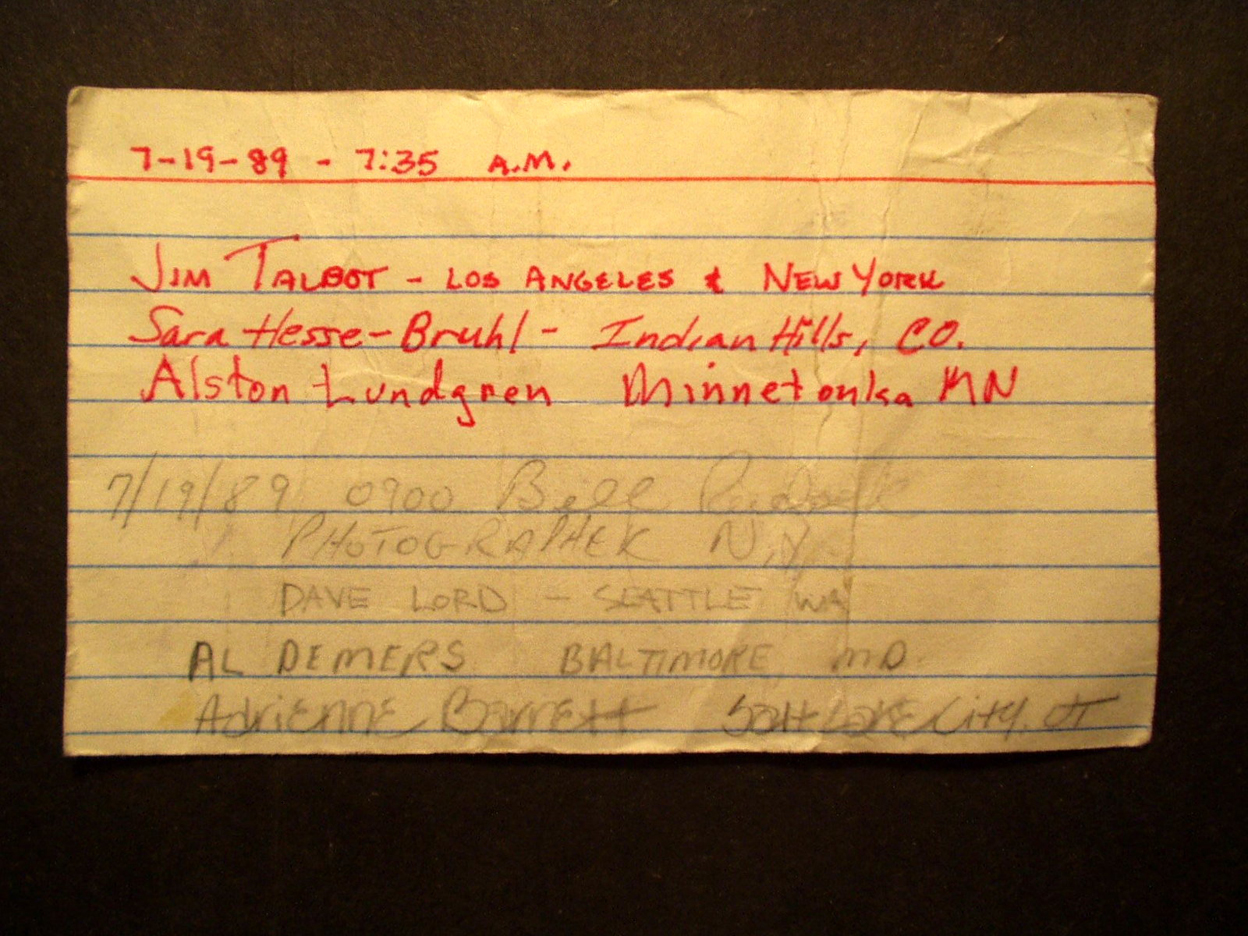 7-19-89 - 7:35 A.M.
JIM TALBOT - LOS ANGELES & NEW YORK
Sara Hesse-Bruhl - Indian Hills, CO.
Alston Lundgren Minnetonka MN
7/19/89 0900 Bell
PHOTOGRAPHER N.Y.
DAVE LORD - SEATTLE WA
AL DEMERS BALTIMORE MD.
Adrienne Barrett Salt Lake City, UT